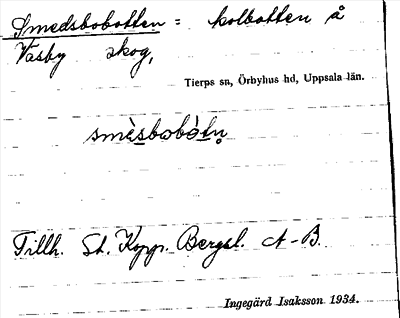 Smedsbobotten = kolbotten å
Vasby skog,
Tierps sn, Örbyhus hd, Uppsala län.
smèsbobótn̥
Tillh. St. Kopp. Bergsl. A-B.
Ingegärd Isaksson 1934.